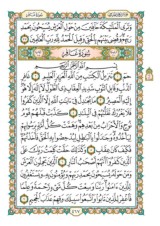 وَتَرَى ٱلْمَلَٰٓئِكَةَ حَآفِّينَ مِنْ حَوْلِ ٱلْعَرْشِ يُسَبِّحُونَ بِحَمْدِ
رَبِّهِمْ وَقُضِىَ بَيْنَهُم بِٱلْحَقِّ وَقِيلَ ٱلْحَمْدُ لِلَّهِ رَبِّ ٱلْعَٰلَمِينَ
سُورَةُ غَافِرٍ
بِسْمِ ٱللَّهِ ٱلرَّحْمَٰنِ ٱلرَّحِيمِ
حمٓ تَنزِيلُ ٱلْكِتَٰبِ مِنَ ٱللَّهِ ٱلْعَزِيزِ ٱلْعَلِيمِ غَافِرِ
ٱلذَّنۢبِ وَقَابِلِ ٱلتَّوْبِ شَدِيدِ ٱلْعِقَابِ ذِى ٱلطَّوْلِ لَآ إِلَٰهَ إِلَّا هُوَ
إِلَيْهِ ٱلْمَصِيرُ مَا يُجَٰدِلُ فِىٓ ءَايَٰتِ ٱللَّهِ إِلَّا ٱلَّذِينَ كَفَرُوا۟
فَلَا يَغْرُرْكَ تَقَلُّبُهُمْ فِى ٱلْبِلَٰدِ كَذَّبَتْ قَبْلَهُمْ قَوْمُ
نُوحٍ وَٱلْأَحْزَابُ مِنۢ بَعْدِهِمْ وَهَمَّتْ كُلُّ أُمَّةٍۭ بِرَسُولِهِمْ
لِيَأْخُذُوهُ وَجَٰدَلُوا۟ بِٱلْبَٰطِلِ لِيُدْحِضُوا۟ بِهِ ٱلْحَقَّ فَأَخَذْتُهُمْ
فَكَيْفَ كَانَ عِقَابِ وَكَذَٰلِكَ حَقَّتْ كَلِمَتُ رَبِّكَ عَلَى
ٱلَّذِينَ كَفَرُوٓا۟ أَنَّهُمْ أَصْحَٰبُ ٱلنَّارِ ٱلَّذِينَ يَحْمِلُونَ
ٱلْعَرْشَ وَمَنْ حَوْلَهُۥ يُسَبِّحُونَ بِحَمْدِ رَبِّهِمْ وَيُؤْمِنُونَ بِهِۦ وَيَسْتَغْفِرُونَ
لِلَّذِينَ ءَامَنُوا۟ رَبَّنَا وَسِعْتَ كُلَّ شَىْءٍ رَّحْمَةً وَعِلْمًا
فَٱغْفِرْ لِلَّذِينَ تَابُوا۟ وَٱتَّبَعُوا۟ سَبِيلَكَ وَقِهِمْ عَذَابَ ٱلْجَحِيمِ
٤٦٧